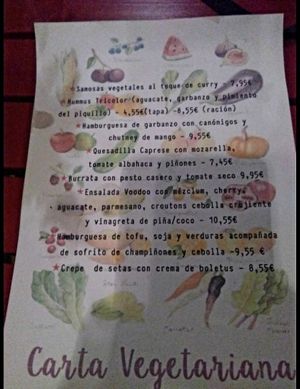 ★Samosas vegetales al toque de curry - 7,95€
★Hummus Tricolor (aguacate, garbanzo y pimiento
del piquillo) - 4,55€(tapa) -8,55€ (ración)
★Hamburguesa de garbanzo con canónigos y
chutney de mango - 9,55€
★Quesadilla Caprese con mozarella,
tomate albahaca y piñones - 7,45€
★Burrata con pesto casero y tomate seco 9,95€
★Ensalada Voodoo con mézclum, cherry,
aguacate, parmesano, croutons cebolla crujiente
y vinagreta de piña/coco - 10,55€
Hamburguesa de tofu, soja y verduras acompañada
de sofrito de champiñones y cebolla -9,55 €
★Crepe de setas con crema de boletus - 8,55€
Carta Vegetariana